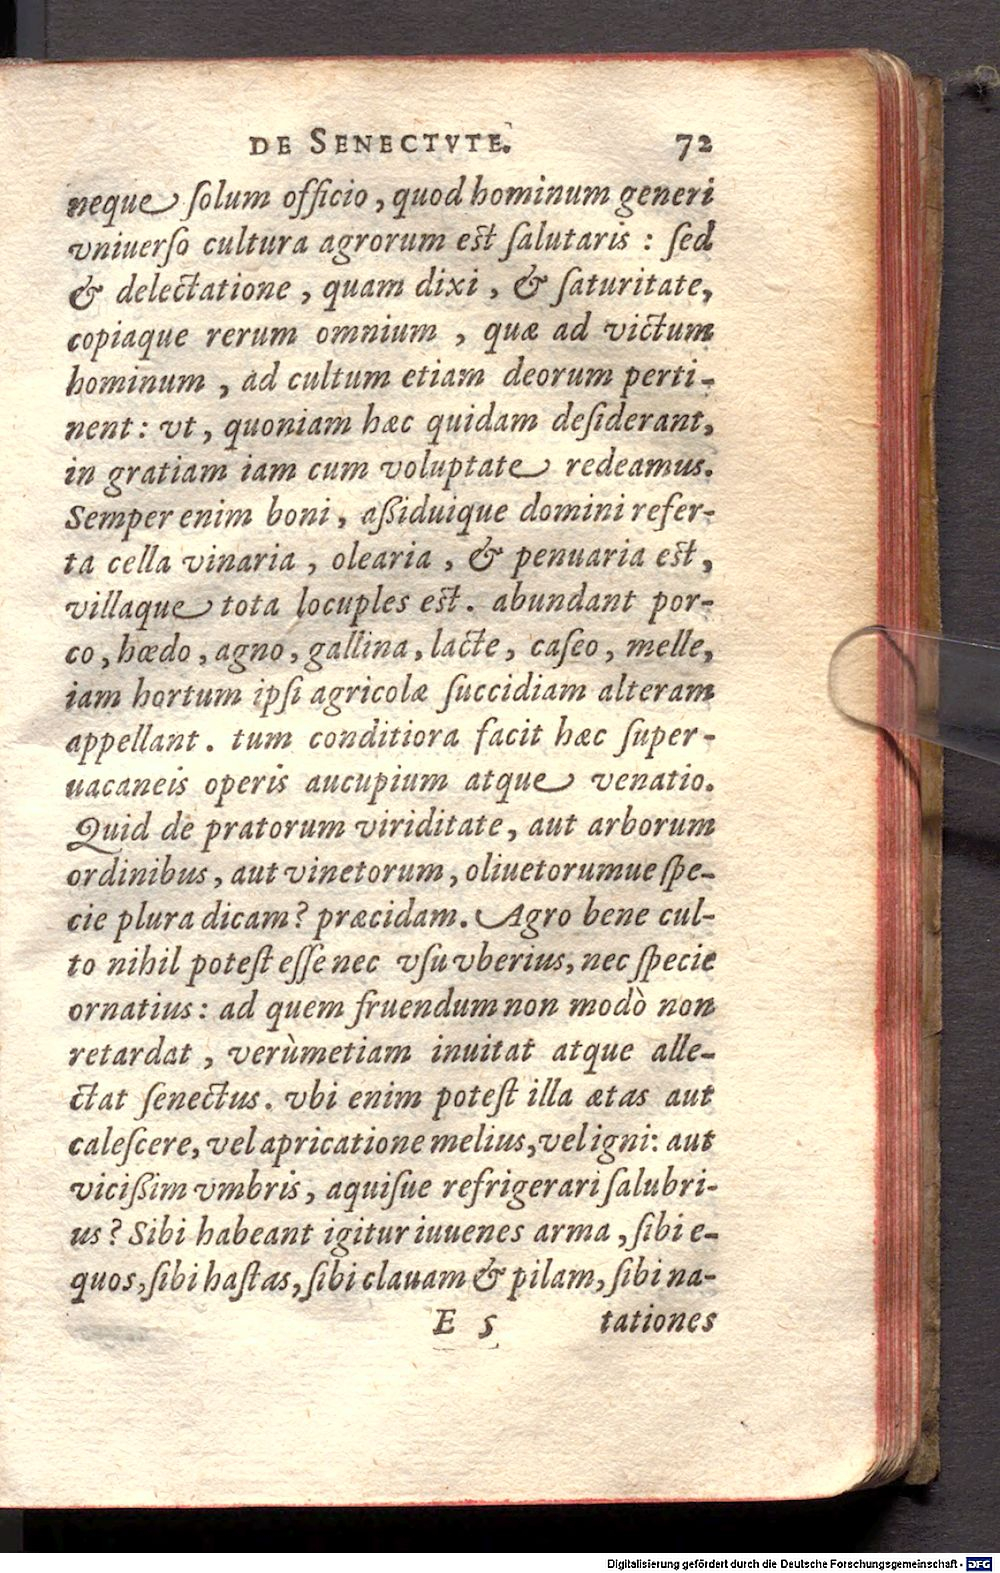 DE SENECTVTE. 72
neque ſolum officio, quod hominum generi
vniuerſo cultura agrorum eſt ſalutaris : ſed
& delectatione, quam dixi, & ſaturitate,
copiaque rerum omnium, quæ ad victum
hominum, ad cultum etiam deorum perti-
nent: vt, quoniam hæc quidam deſiderant,
in gratiam iam cum voluptate redeamus.
Semper enim boni, aßiduique domini refer-
ta cella vinaria, olearia, & penuaria eſt,
villaque tota locuples eſt. abundant por-
co, hœdo, agno, gallina, lacte, caſeo, melle,
iam hortum ipſi agricolæ ſuccidiam alteram
appellant. tum conditiora facit hæc ſuper-
uacaneis operis aucupium atque venatio.
Quid de pratorum viriditate, aut arborum
ordinibus, aut vinetorum, oliuetorumue ſpe-
cie plura dicam? præcidam. Agro bene cul-
to nihil poteſt eſſe nec vſu vberius, nec ſpecie
ornatius: ad quem fruendum non modò non
retardat, verùmetiam inuitat atque alle-
ctat ſenectus. vbi enim poteſt illa ætas aut
caleſcere, vel apricatione melius, vel igni: aut
vicißim vmbris, aquiſue refrigerari ſalubri-
us? Sibi habeant igitur iuuenes arma, ſibi e-
quos, ſibi haſtas, ſibi clauam & pilam, ſibi na-
E 5 tationes
Digitalisierung gefördert durch die Deutsche Forschungsgemeinschaft - DFG